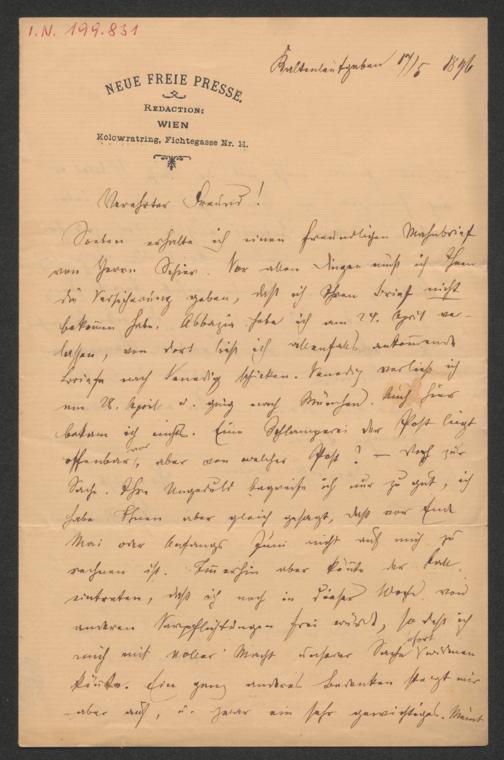 I.N. 199.831
Kaltenleutgeben 17/5 1896
NEUE FREIE PRESSE.
REDACTION:
WIEN
Kolowratring, Fichtegasse Nr. 11.
Verehrter Freund!
Soeben erhalte ich einen freundlichen Mahnbrief
von Herrn Schier. Vor allen Dingen muß ich Ihnen
die Versicherung geben, daß ich Ihren Brief nicht
bekommen habe. Abbazia habe ich am 24. April ver-
lassen, von dort ließ ich allenfalls ankommende
Briefe nach Venedig schicken. Venedig verließ ich
am 28. April u. ging nach München. Auch hier
bekam ich nichts. Eine Schlamperei der Post liegt
offenbar vor, aber von welcher Post? — Doch zur
Sache. Ihre Ungeduld begreife ich nur zu gut, ich
habe Ihnen aber gleich gesagt, daß vor Ende
Mai oder Anfangs Juni nicht auf mich zu
rechnen ist. Immerhin aber könnte der Fall
eintreten, daß ich noch in dieser Woche von
anderen Verpflichtungen frei würde, so daß ich
mich mit voller Macht unserer Sache sofort widmen
könnte. Ein ganz anderes Bedenken steigt mir
aber auf, u. zwar ein sehr gewichtiges. Meint